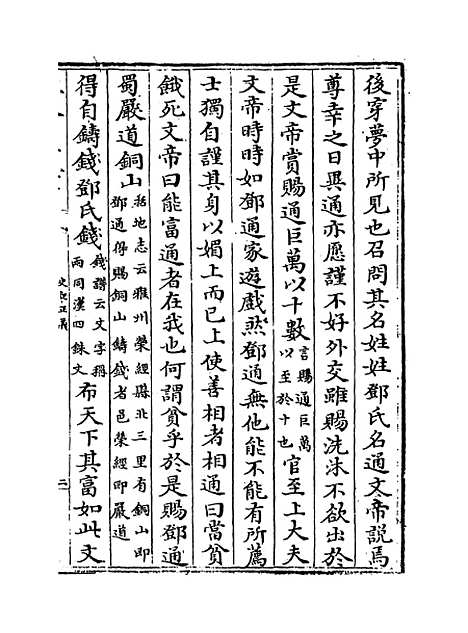 後穿夢中所見也召問其名姓姓鄧氏名通文帝說焉
尊幸之日異通亦愿謹不好外交雖賜洗沐不欲出於
是文帝賞賜通巨萬以十數言賜通巨萬以至於十也官至上大夫
文帝時時如鄧通家遊戲然鄧通無他能不能有所薦
士獨自謹其身以媚上而已上使善相者相通曰當貧
餓死文帝曰能富通者在我也何謂貧乎於是賜鄧通
蜀嚴道銅山括地志云雅州榮經縣北三里有銅山即鄧通得賜銅山鑄錢者邑榮經即嚴道
得自鑄錢鄧氏錢錢譜云文字稱兩同漢四銖文布天下其富如此文
史記正義
二